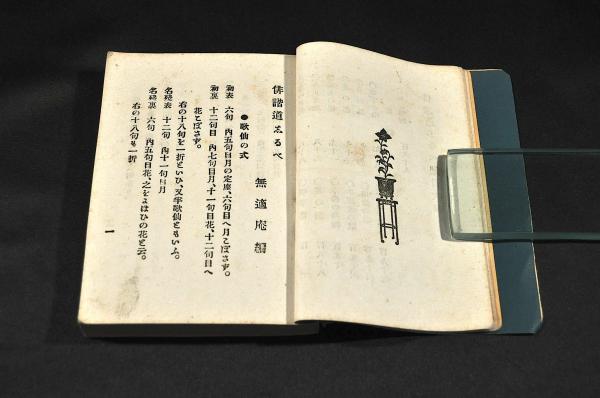 俳諧道志るべ
無適庵編
●歌仙の式
初表 六句 内五句目月の定座、六句目へ月こぼさず。
初裏 十二句 内七句目月、十一句目花、十二句目へ
花こぼさず。
右の十八句を一折といひ、又半歌仙ともいふ。
名残表 十二句 内十一句目月
名残裏 六句 内五句目花、之をよはひの花と云。
右の十八句も一折
一